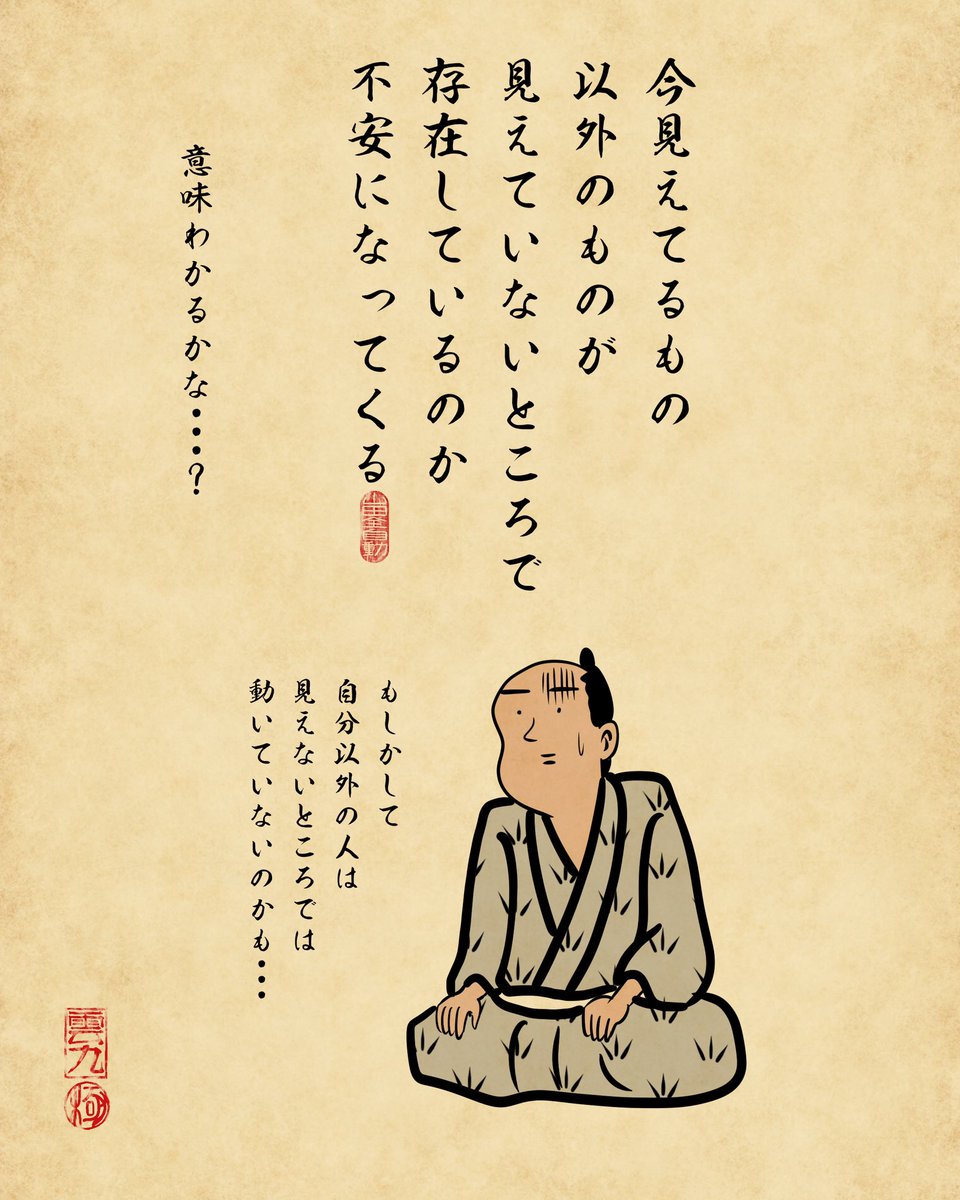 今見えてるもの
以外のものが
見えていないところで
存在しているのか
不安になってくる
意味わかるかな・・・・?
もしかして
自分以外の人は
見えないところでは
動いていないのかも・・・